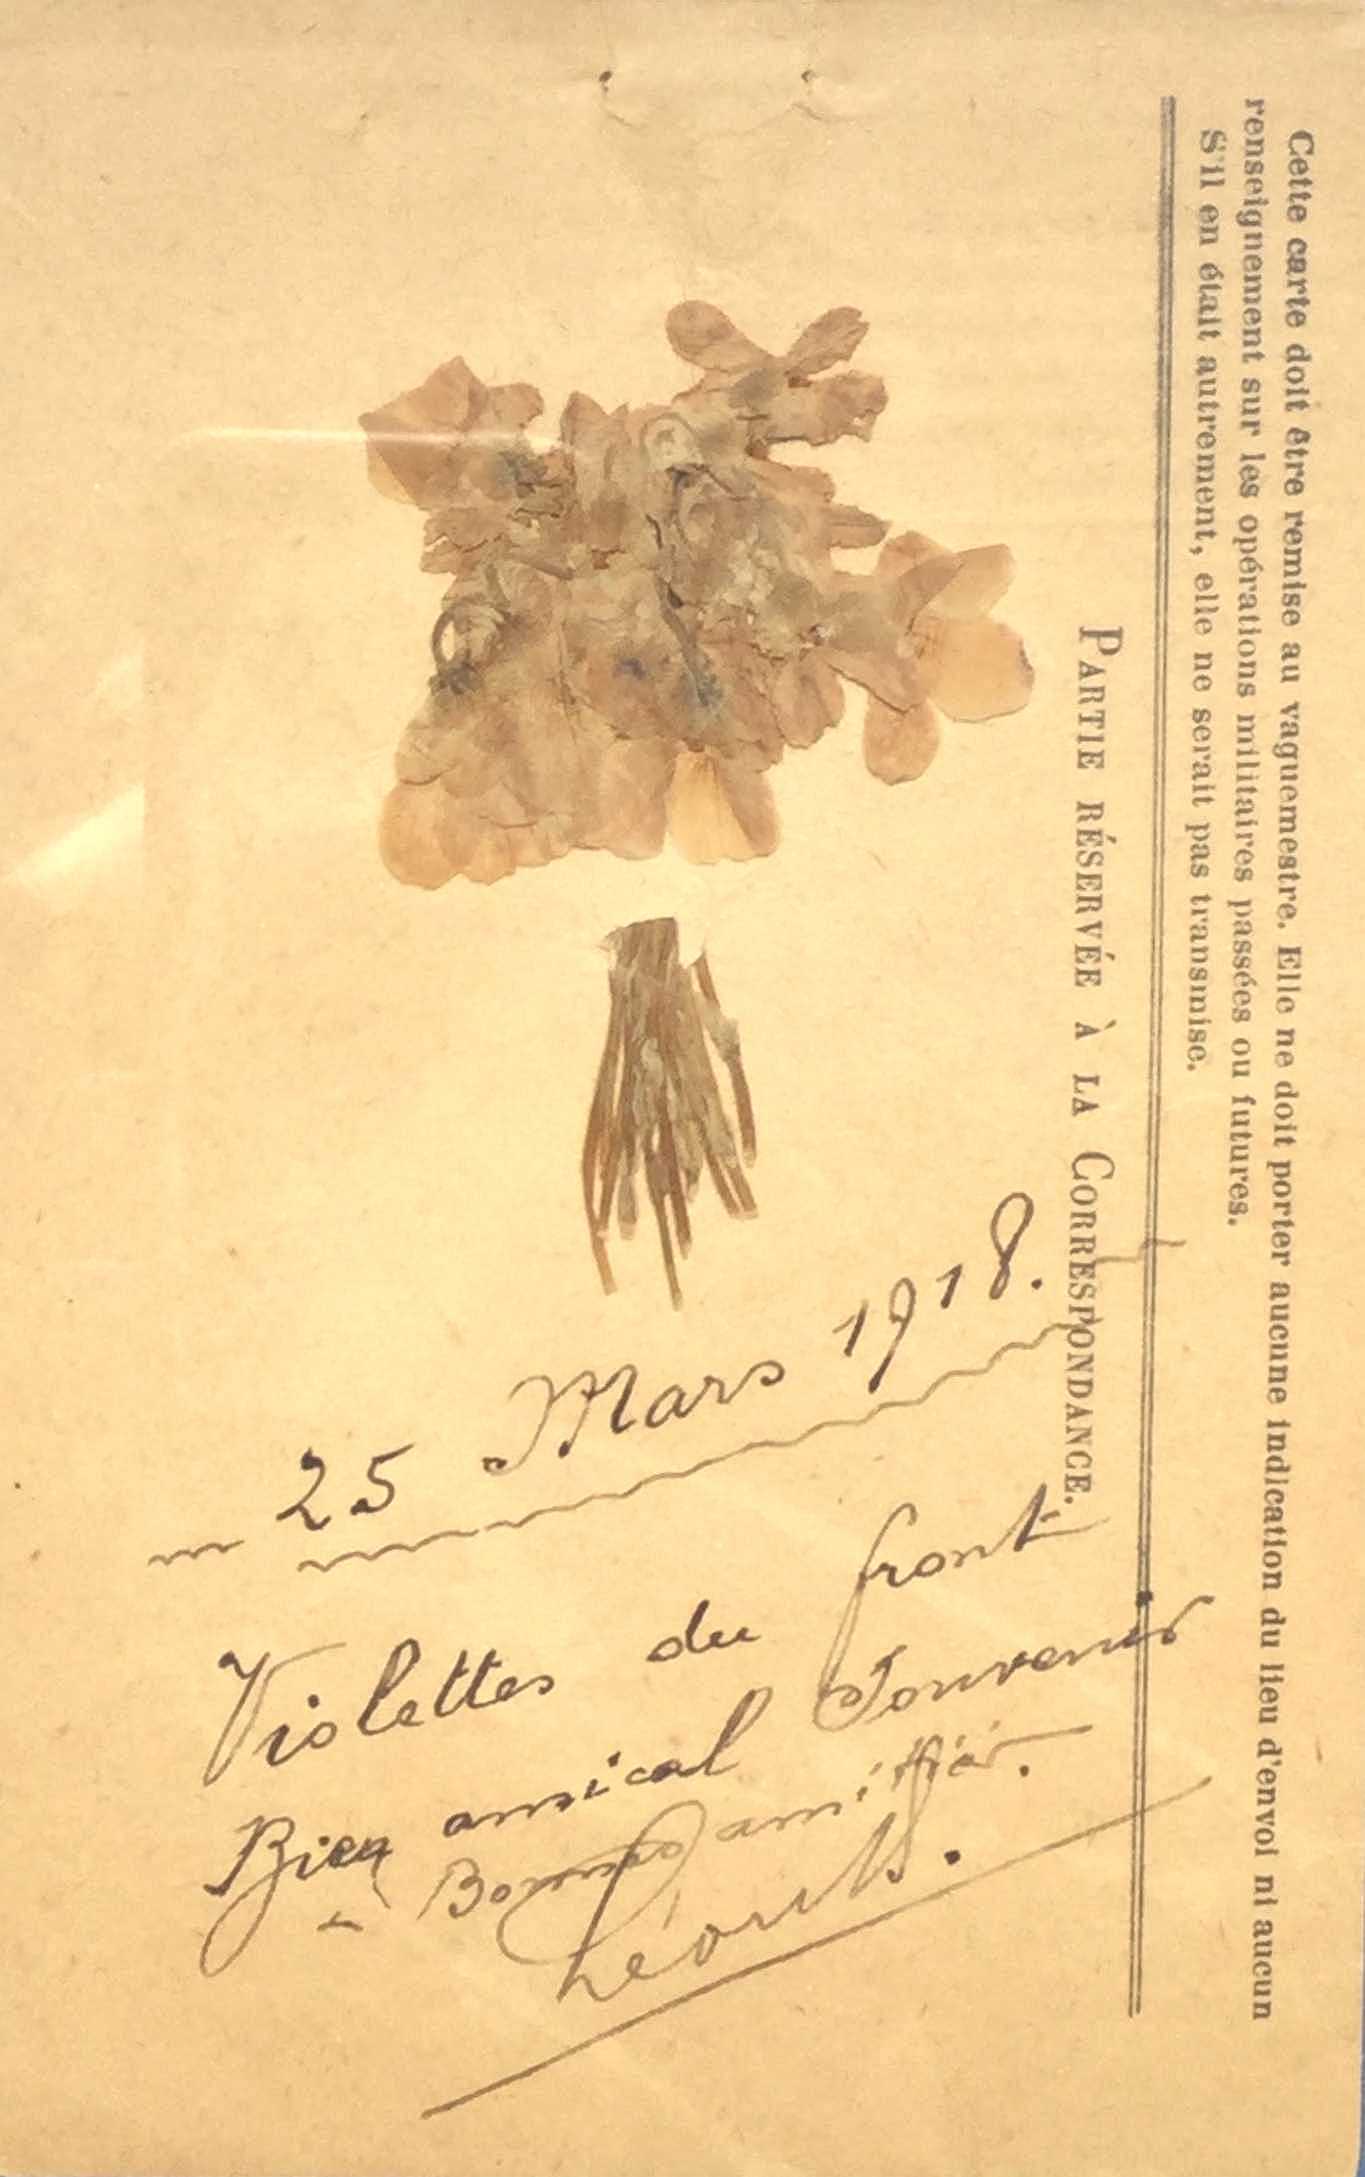 Cette carte doit être remise au vaguemestre. Elle ne doit porter aucune indication du lieu d'envoi ni aucun
renseignement sur les opérations militaires passées ou futures.
S'il en était autrement, elle ne serait pas transmise.
PARTIE RÉSERVÉE À LA CORRESPONDANCE.
25 Mars 1918.
Violettes du front
Bien amical Souvenir
Bonnes amitiés.